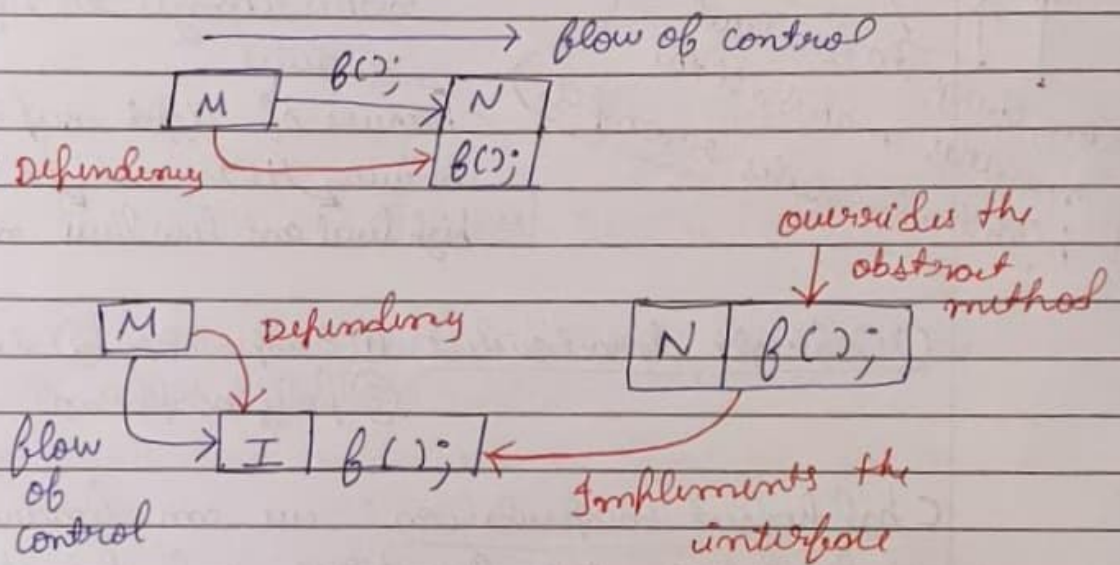 flow of control
f();
M
N
Dependency
f();
overrides the
abstract
method
M
Dependency
N
f();
flow
of
control
I
f();
Implements the
interface